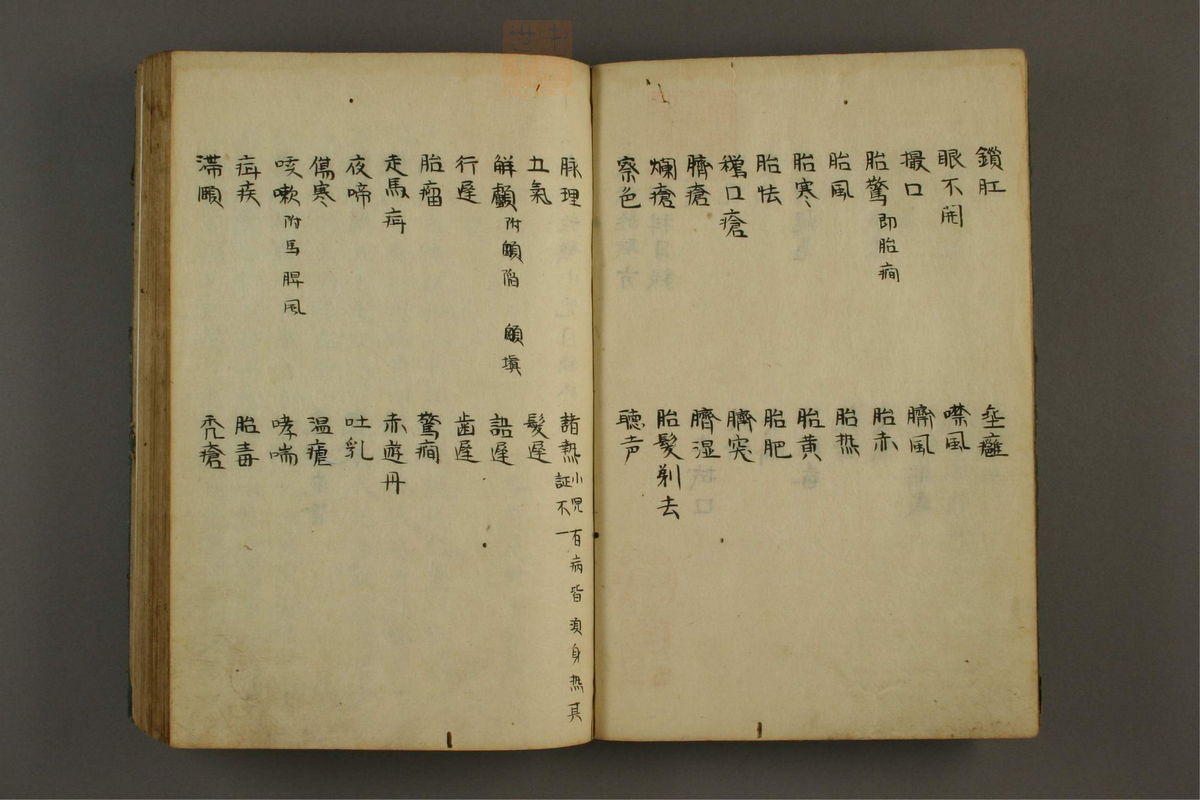 鎖肛 垂癰
眼不開 噤風
撮口 臍風
胎驚 即胎癇 胎赤
胎風 胎热
胎寒 胎黄
胎怯 胎肥
鵞口瘡 臍突
臍瘡 臍湿
爛瘡 胎髮剃去
察色 聴声
脉理 諸热 小児百病皆須身热其証不一
五氣 髮遅
觧顱 附顖陷 顖塡 語遅
行遅 歯遅
胎瘤 驚癇
走馬疳 赤遊丹
夜啼 吐乳
傷寒 温瘧
咳嗽 附馬脾風 哮喘
疳疾 胎毒
滯頥 禿瘡